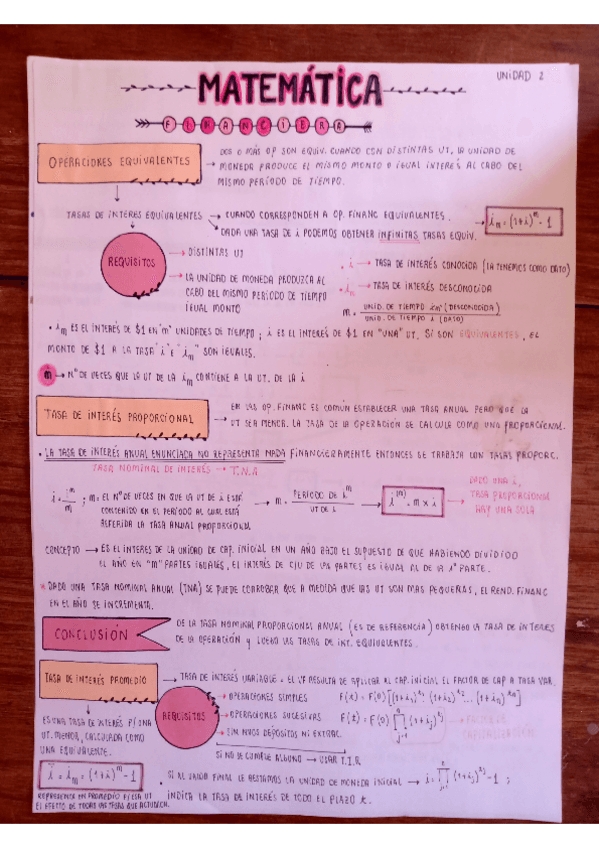 MATEMÁTICA
UNIDAD 2
FINANCIERA
OPERACIONES EQUIVALENTES
DOS O MÁS OP SON EQUIV. CUANDO CON DISTINTAS UT, LA UNIDAD DE
MONEDA PRODUCE EL MISMO MONTO O IGUAL INTERÉS AL CABO DEL
MISMO PERÍODO DE TIEMPO.
TASAS DE INTERÉS EQUIVALENTES → CUANDO CORRESPONDEN A OP. FINANC EQUIVALENTES.
DADA UNA TASA DE i PODEMOS OBTENER INFINITAS TASAS EQUIV.
i_m = (1+i)^m - 1
REQUISITOS
→ DISTINTAS UT
→ LA UNIDAD DE MONEDA PRODUZCA AL
CABO DEL MISMO PERÍODO DE TIEMPO
IGUAL MONTO
• i → TASA DE INTERÉS CONOCIDA (LA TENEMOS COMO DATO)
• i_m → TASA DE INTERÉS DESCONOCIDA
m = UNID. DE TIEMPO i_m (DESCONOCIDA) / UNID. DE TIEMPO i (DATO)
• i_m ES EL INTERÉS DE $1 EN "m" UNIDADES DE TIEMPO ; i ES EL INTERÉS DE $1 EN "UNA" UT. SI SON EQUIVALENTES, EL
MONTO DE $1 A LA TASA "i" E "i_m" SON IGUALES.
m → N° DE VECES QUE LA UT DE LA i_m CONTIENE A LA UT. DE LA i
TASA DE INTERÉS PROPORCIONAL
→ EN LAS OP. FINANC ES COMÚN ESTABLECER UNA TASA ANUAL PERO QUE LA
UT SEA MENOR. LA TASA DE LA OPERACIÓN SE CALCULA COMO UNA PROPORCIONAL.
• LA TASA DE INTERÉS ANUAL ENUNCIADA NO REPRESENTA NADA FINANCIERAMENTE ENTONCES SE TRABAJA CON TASAS PROPORC.
TASA NOMINAL DE INTERÉS → T.N.A
; m = EL N° DE VECES EN QUE LA UT DE i ESTÁ
CONTENIDO EN EL PERÍODO AL CUAL ESTÁ
REFERIDA LA TASA ANUAL PROPORCIONAL
→ m = PERÍODO DE i^m / UT DE i
→ i^(m) = m × i
→ DADO UNA i,
TASA PROPORCIONAL
HAY UNA SOLA
CONCEPTO → ES EL INTERES DE LA UNIDAD DE CAP. INICIAL EN UN AÑO BAJO EL SUPUESTO DE QUE HABIENDO DIVIDIDO
EL AÑO EN "m" PARTES IGUALES, EL INTERÉS DE C/U DE LAS PARTES ES IGUAL AL DE LA 1° PARTE.
* DADO UNA TASA NOMINAL ANUAL (TNA) SE PUEDE COROBAR QUE A MEDIDA QUE LAS UT SON MAS PEQUEÑAS, EL REND. FINANC
EN EL AÑO SE INCREMENTA.
CONCLUSIÓN
DE LA TASA NOMINAL PROPORCIONAL ANUAL (ES DE REFERENCIA) OBTENGO LA TASA DE INTERES
DE LA OPERACIÓN Y LUEGO LAS TASAS DE INT. EQUIVALENTES.
TASA DE INTERÉS PROMEDIO
→ TASA DE INTERÉS VARIABLE = EL VF RESULTA DE APLICAR AL CAP. INICIAL EL FACTOR DE CAP A TASA VAR.
REQUISITOS
→ OPERACIONES SIMPLES
→ OPERACIONES SUCESIVAS
→ SIN NVOS DEPÓSITOS NI EXTRAC.
SI NO SE CUMPLE ALGUNO → USAR T.I.R
FACTOR DE
CAPITALIZACIÓN
ES UNA TASA DE INTERÉS P/ UNA
UT. MENOR, CALCULADA COMO
UNA EQUIVALENTE.
i = i_m = (1+i)^m - 1
REPRESENTA EN PROMEDIO P/ ESA UT
EL EFECTO DE TODAS LAS TASAS QUE ACTUARON.
• SI AL SALDO FINAL LE RESTAMOS LA UNIDAD DE MONEDA INICIAL →
INDICA LA TASA DE INTERÉS DE TODO EL PLAZO t.